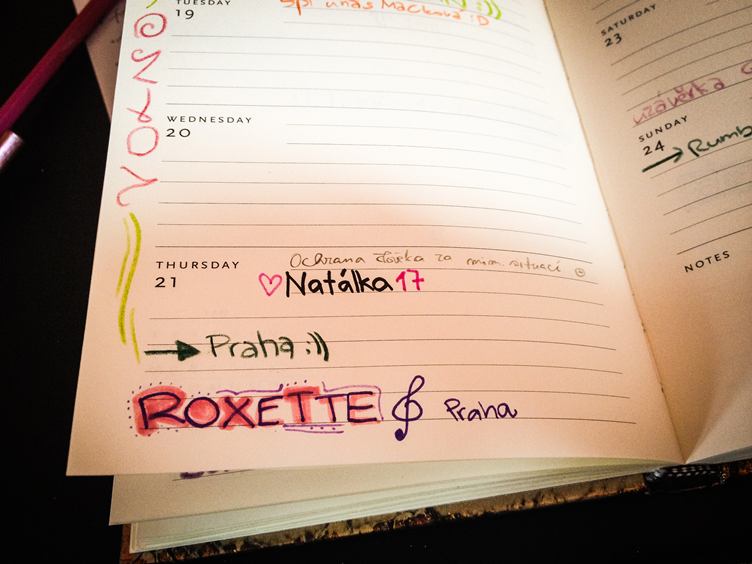 TUESDAY
19
Spí unás Macková :D
WEDNESDAY
20
THURSDAY
21
Ochrana člověka za mim. situací ☺
♡Natálka 17
→ Praha :))
ROXETTE Praha
LONDÝN
SATURDAY
23
uzávěrka
SUNDAY
24
→ Rumb
NOTES